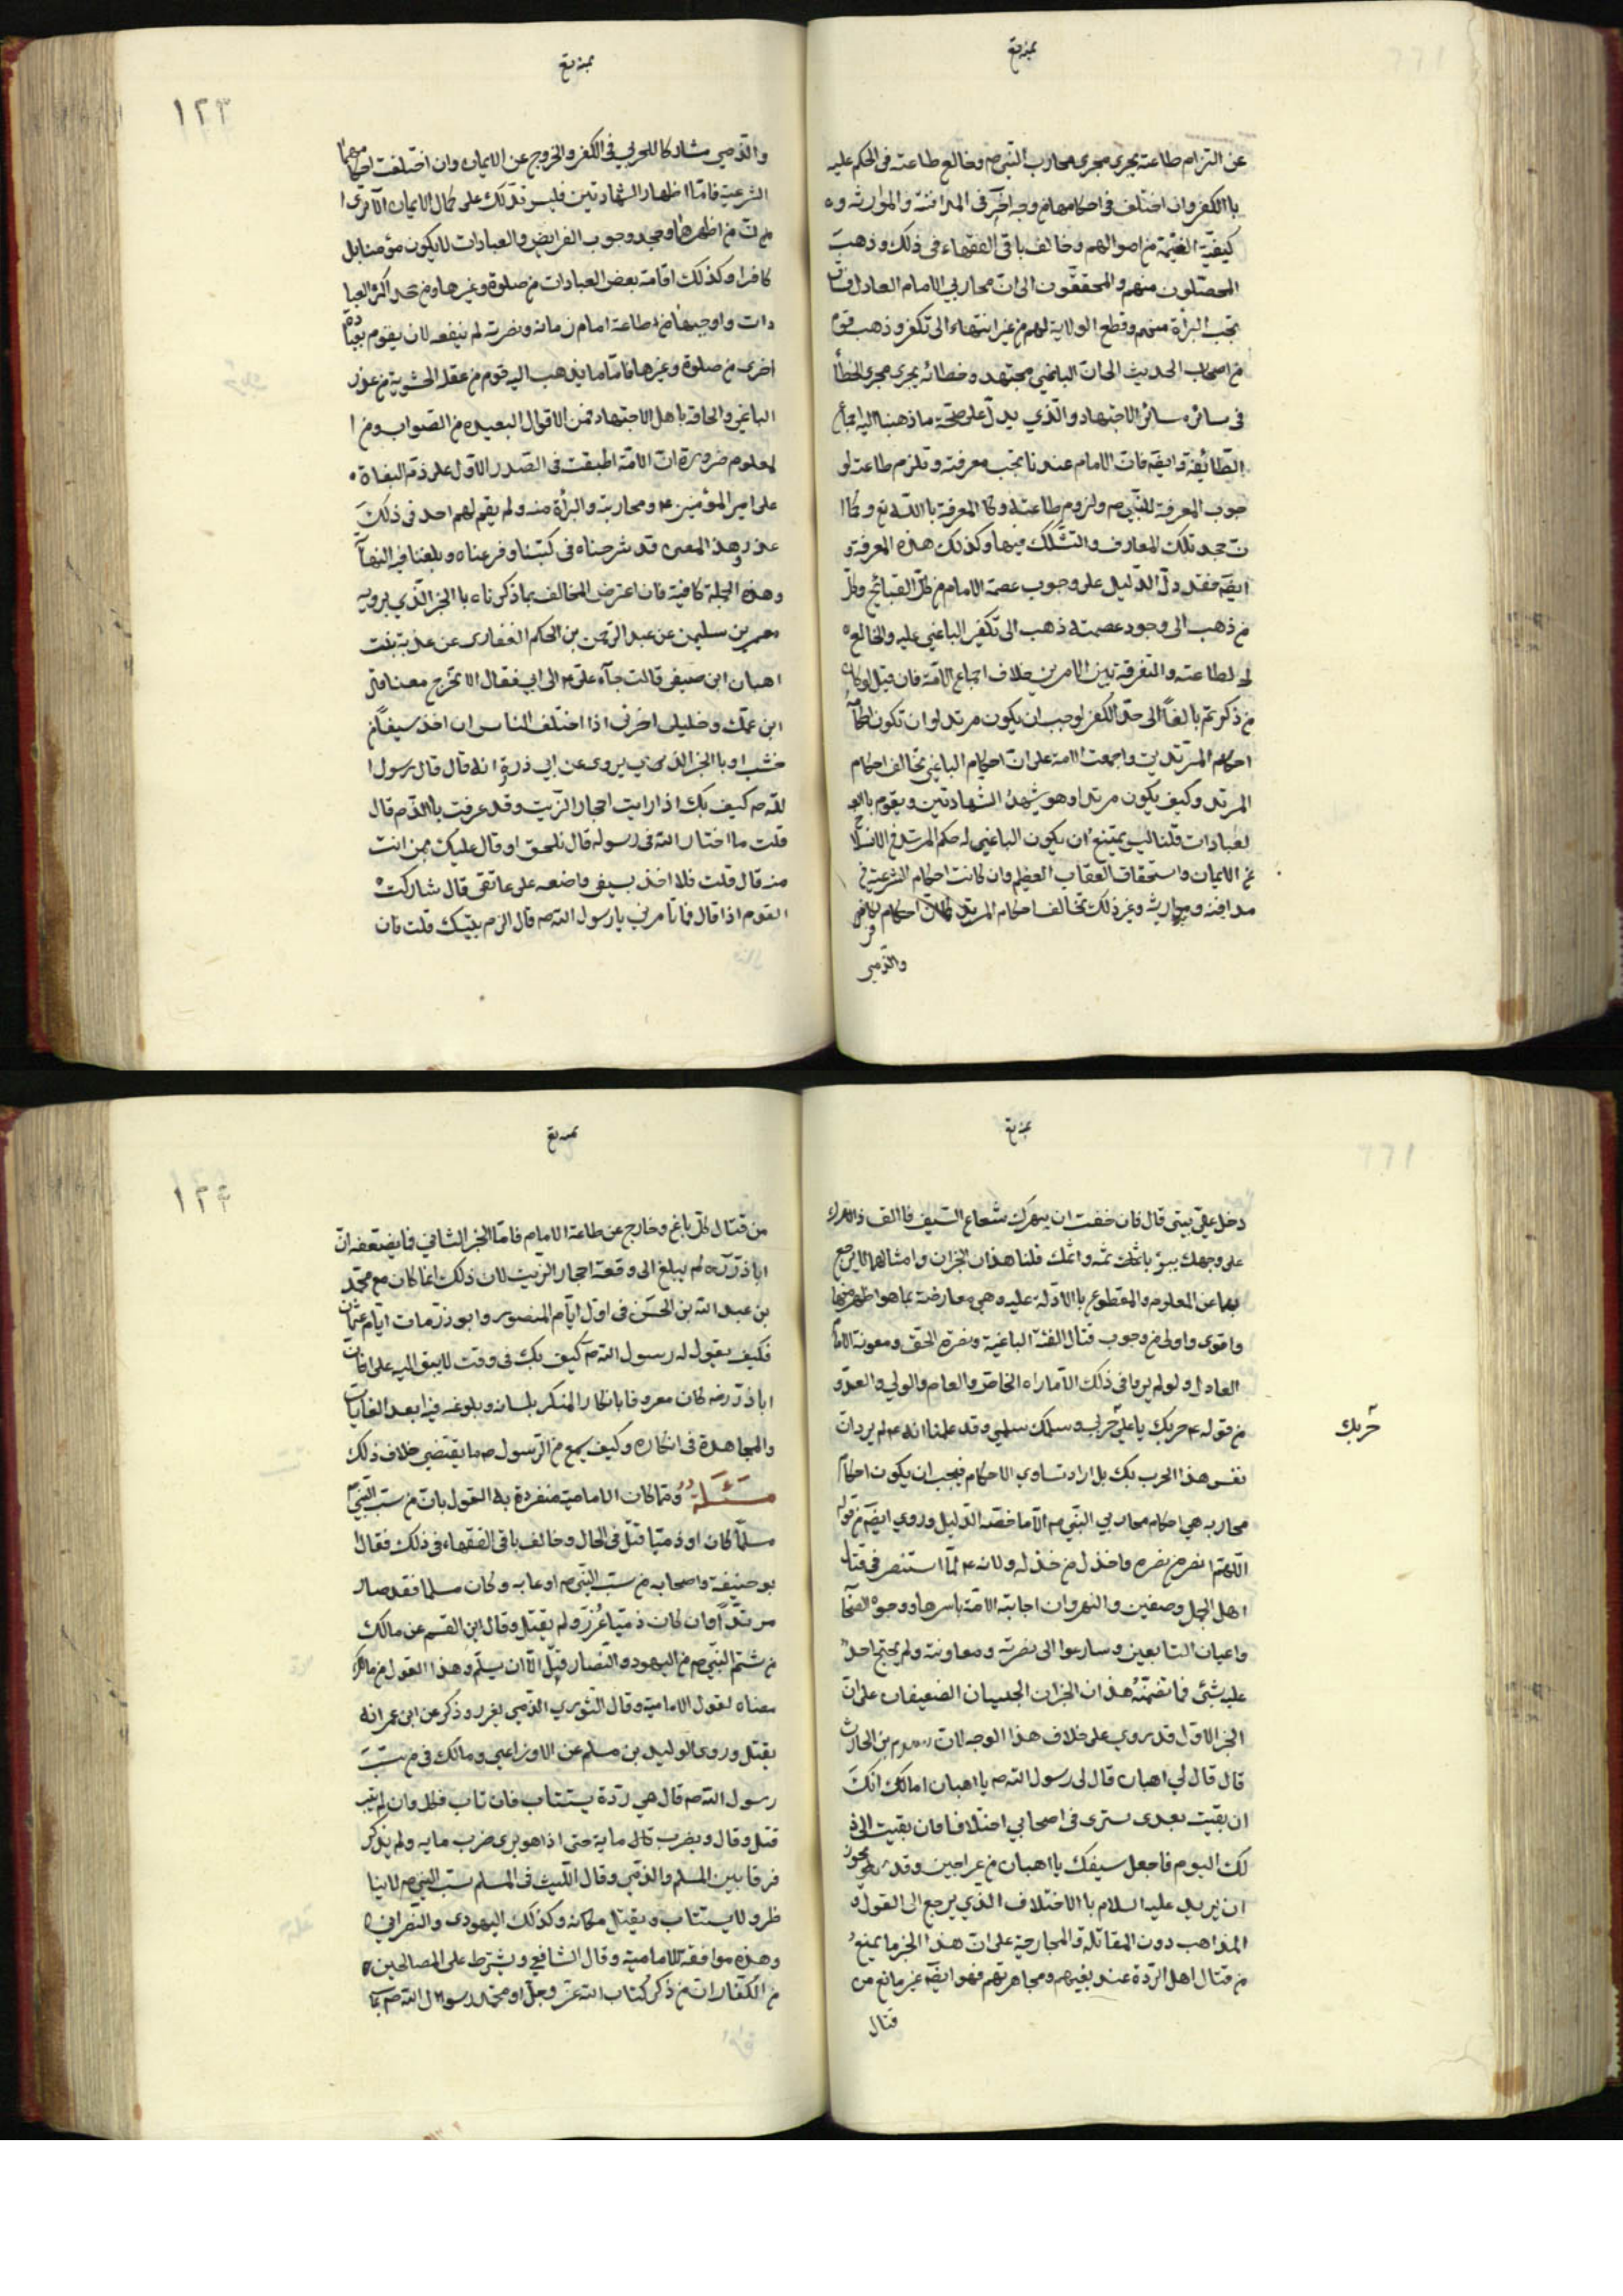 عن التزام طاعته يجرى مجرى محارب النبي ص وخالع طاعته فى الحكم عليه
باالكفر وان اختلف فى احكامهما من وجه آخر فى المدافنة والموارثه وه
كيفيّة الغنيمة من اموالهم وخالف باقى الفقهاء فى ذلك وذهب
المحصّلون منهم والمحققّون الى انّ محاربي الامام العادل فساق
تجب البرأة منهم وقطع الولاية لهم من غير انتهاء الى تكفر وذهب قوم
من اصحاب الحديث الى انّ الباغي مجتهد وخطائه يجرى مجرى الخطأ
فى سائره سائر الاجتهاد والّذي يدلّ على صحّة ما ذهبنا اليه اجماع
الطّائفة وايضه فانّ الامام عندنا يجب معرفته وتلزم طاعته لو
جوب المعرفة للنبّي ص ولزوم طاعته وكاالمعرفة باالله تع وكماا
ن جحد تلك المعارف والتشّكك فيها وكذلك هذه المعرفة و
ايضه فقد دلّ الدّليل على وجوب عصمة الامام من كلّ القبائح وكلّ
من ذهب الى وجود عصمته ذهب الى تكفير الباغي عليه والخالع ه
له لطاعته والتفرقة بين الامرين خلاف اجماع الامّة فان قيل لو كان
من ذكرتم بالغاً الى حدّ الكفر لوجب ان يكون مرتد لو ان تكون احكامه
احكام المرتدين واجمعت الامة على انّ احكام الباغي تخالف احكام
المرتد وكيف يكون مرتد او هو يشهد الشّهادتين ويقوم باالع
لعبادات قلنا ليس يمتنع ان يكون الباغي له حكم المرتد فى الانسلا
عن الايمان واستحقاق العقاب العظيم وان كانت احكام الشرعية فى
مدافنه وموارثه وغير ذلك تخالف احكام المرتد كماان احكام الكافر
والذّمي
١٢٣
والذّمي مشاركا للحربي فى الكفر والخروج عن الايمان وان اختلفت احكامهما
الشرعية فامّا اظهار الشّهادتين فليس تدّلك على كمال الايمان الا ترى ا
من انّ من اظهرهما وجحد وجوب الفرايض والعبادات لايكون مؤمنا بل
كافرا وكذلك اقامة بعض العبادات من صلوة وغيرها ومن جحد اكثر العبا
دات واوجبها من طاعة امام زمانه ونصرته لم ينفعه لان يقوم بعبادة
اخرى من صلوة وغيرها فامّا ما يذهب اليه قوم من عقلة الحشوية من عذر
الباغي والحاقه باهل الاجتهاد فمن الاقوال البعيده من الصّواب ومن ا
لمعلوم ضرورة انّ الامّة اطبقت فى الصّدر الاوّل على ذمّ البغاة ه
على امير المؤمنين ع ومحاربته والبرأة منه ولم يقم لهم احد فى ذلك
عذر وهذ المعنى قد شرحناه فى كتبنا وفرعناه وبلغنا فيه النهآ
وهذه الجملة كافية فان اعترض المخالف بما ذكرناه باالخبر الّذي يرويه
معمر بن سليمن عن عبد الرّحمن بن الحكم الغفارى عن عديبة بنت
اهبان ابن صيفى قالت جآء على ع الى ابى فقال الا تخرج معنا قال
ابن عمّك وخليلى اخرنى اذا اختلف الناس ان اخذ سيفاً من
خشب او باالخبر الذى يروى عن ابى ذر ره انه قال قال رسول ا
لله ص كيف بك اذا رايت احجار الزّيت وقد عرفت باالدّم قال
قلت ما اختار الله فى رسوله قال تلحق او قال عليك بمن انت
منه قال قلت فلا اخذ بسيفى واضعه على عاتقى قال شاركت ه
القوم اذا قال فما تأمرني يا رسول الله ص قال الزم بيتك قلت فان
دخل علىّ بيتى قال فان خفت ان يبهرك شعاع السّيف فاالق
على وجهك يبؤ باثمك ثمّه واثمك قلنا هذان الخبران وامثالهما لا يرجع
بهما عن المعلوم والمقطوع باالادلة عليه وهى معارضة بما هو اظهر منها
واقوى واولى من وجوب قتال الفئة الباغية ونصرة الحق ومعونة الاما
العادل ولو لم يرو فى ذلك الّا ماراه الخاصّ والعام والولى والعدّو
من قوله ع حربك يا علىّ حربي وسلمك سلمي وقد علمنا انه ع لم يرد انّ
حربك
نفس هذا الحرب بك بل اراد تساوى الاحكام فيجب ان يكون احكام
محاربه هى احكام محاربي النبّي ص الّا ما خصّه الدّليل وروي ايضه من قوله
اللهمّ انصر من نصره واخذل من خذله ولانه ع لمّا استنصر فى قتال
اهل الجمل وصفين والنهروان اجابته الامّة باسرها ووجوه الصّحا
واعيان التابعين وسارعوا الى نصرته ومعاونته ولم يحتج احد
عليه بشئ مما تضمنّه هذان الخبران الخبيثان الضعيفان على انّ
الخبر الاوّل قد روي على خلاف هذا الوجه لانّ بن الحارث
قال قال لي اهبان قال لى رسول الله ص يا اهبان امالك انّك
ان بقيت بعدى سترى فى اصحابي اختلافا فان بقيت الى ذ
لك اليوم فاجعل سيفك يا اهبان من عراجين وقد يجوز
ان يريد عليه السلام باالاختلاف الذي يرجع الى القول و
المذاهب دون المقاتلة والمحاربة على انّ هذا الخبر ما يمنع
من قتال اهل الرّدة عند بغيهم ومجاهرتهم فهو ايضه غير مانع من
قتال
١٢٤
من قتال كلّ باغ وخارج عن طاعة الامام فامّا الخبر الثاني فما يضعفه انّ
اباذر ره لم يبلغ الى وقعة احجار الزيت لان ذلك انما كان مع محمّد
بن عبد الله بن الحسن فى اوّل ايّام المنصور وابوذر مات ايّام عثمان
فكيف يقول له رسول الله ص كيف بك فى وقت لا يبقى اليه على انّ
اباذر رضه كان معروفا باانكار المنكر بلسانه وبلوغه فيه ابعد الغايات
والمجاهدة فى انكاره وكيف يسمع من الرّسول ص ما يقتضي خلاف ذلك
مسئلة وممّا كان الاماميّة منفردة به القول بانّ من سبّ النّبي ص
مسلمّاً كان او ذمّيّا قتل فى الحال وخالف باقى الفقهاء فى ذلك فقال ا
بو حنيفة واصحابه من سبّ النّبى ص او عابه وكان مسلما فقد صار
مرتدّاً وان كان ذميّا عُزّر ولم يقتل وقال ابن القسم عن مالك
من شتم النبّي ص من اليهود والنّصار قتل الّا ان يسلم وهذا القول من مالك
مضاه لقول الاماميّة وقال الثّوري الذّمى يعزر وذكر عن ابن عمر انه
يقتل وروى الوليد بن مسلم عن الاوزاعي ومالك فى من سبّ
رسول الله ص قال هي ردّة يستتاب فان تاب نكل وان لم يتب
قتل وقال ويضرب مايه حتى اذا هو برى ضرب مايه ولم يذكر
فرقا بين المسلم والذّمّي وقال اللّيث فى المسلم يسبّ النّبي ص لا ينا
ظر ولا يستتاب ويقتل مكانه وكذلك اليهودى والنّصراني ه
وهذه موافقة للامامية وقال الشافعي ويشترط على المصالحين ه
من الكفّار انّ من ذكر كتاب الله عزّ وجلّ او محمّد رسول الله ص بما